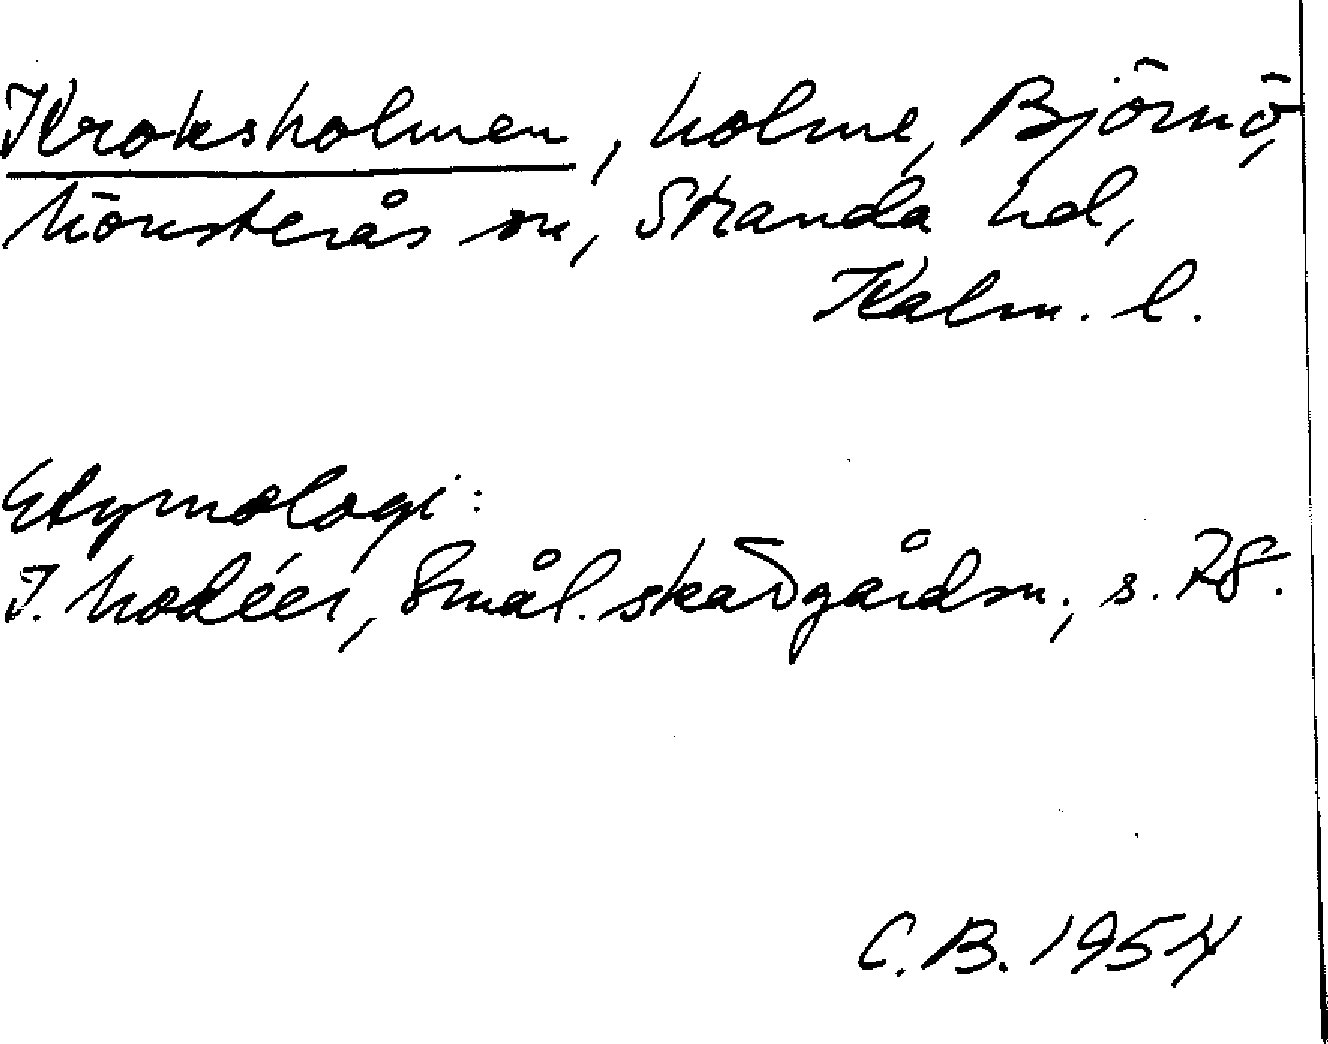 Kroksholmen, holme, Björnö,
Mönsterås sn, Stranda hd,
Kalm. l.
Etymologi:
I. Modéer, Smål. skärgårdsn., s. 78.
C. B. 1954